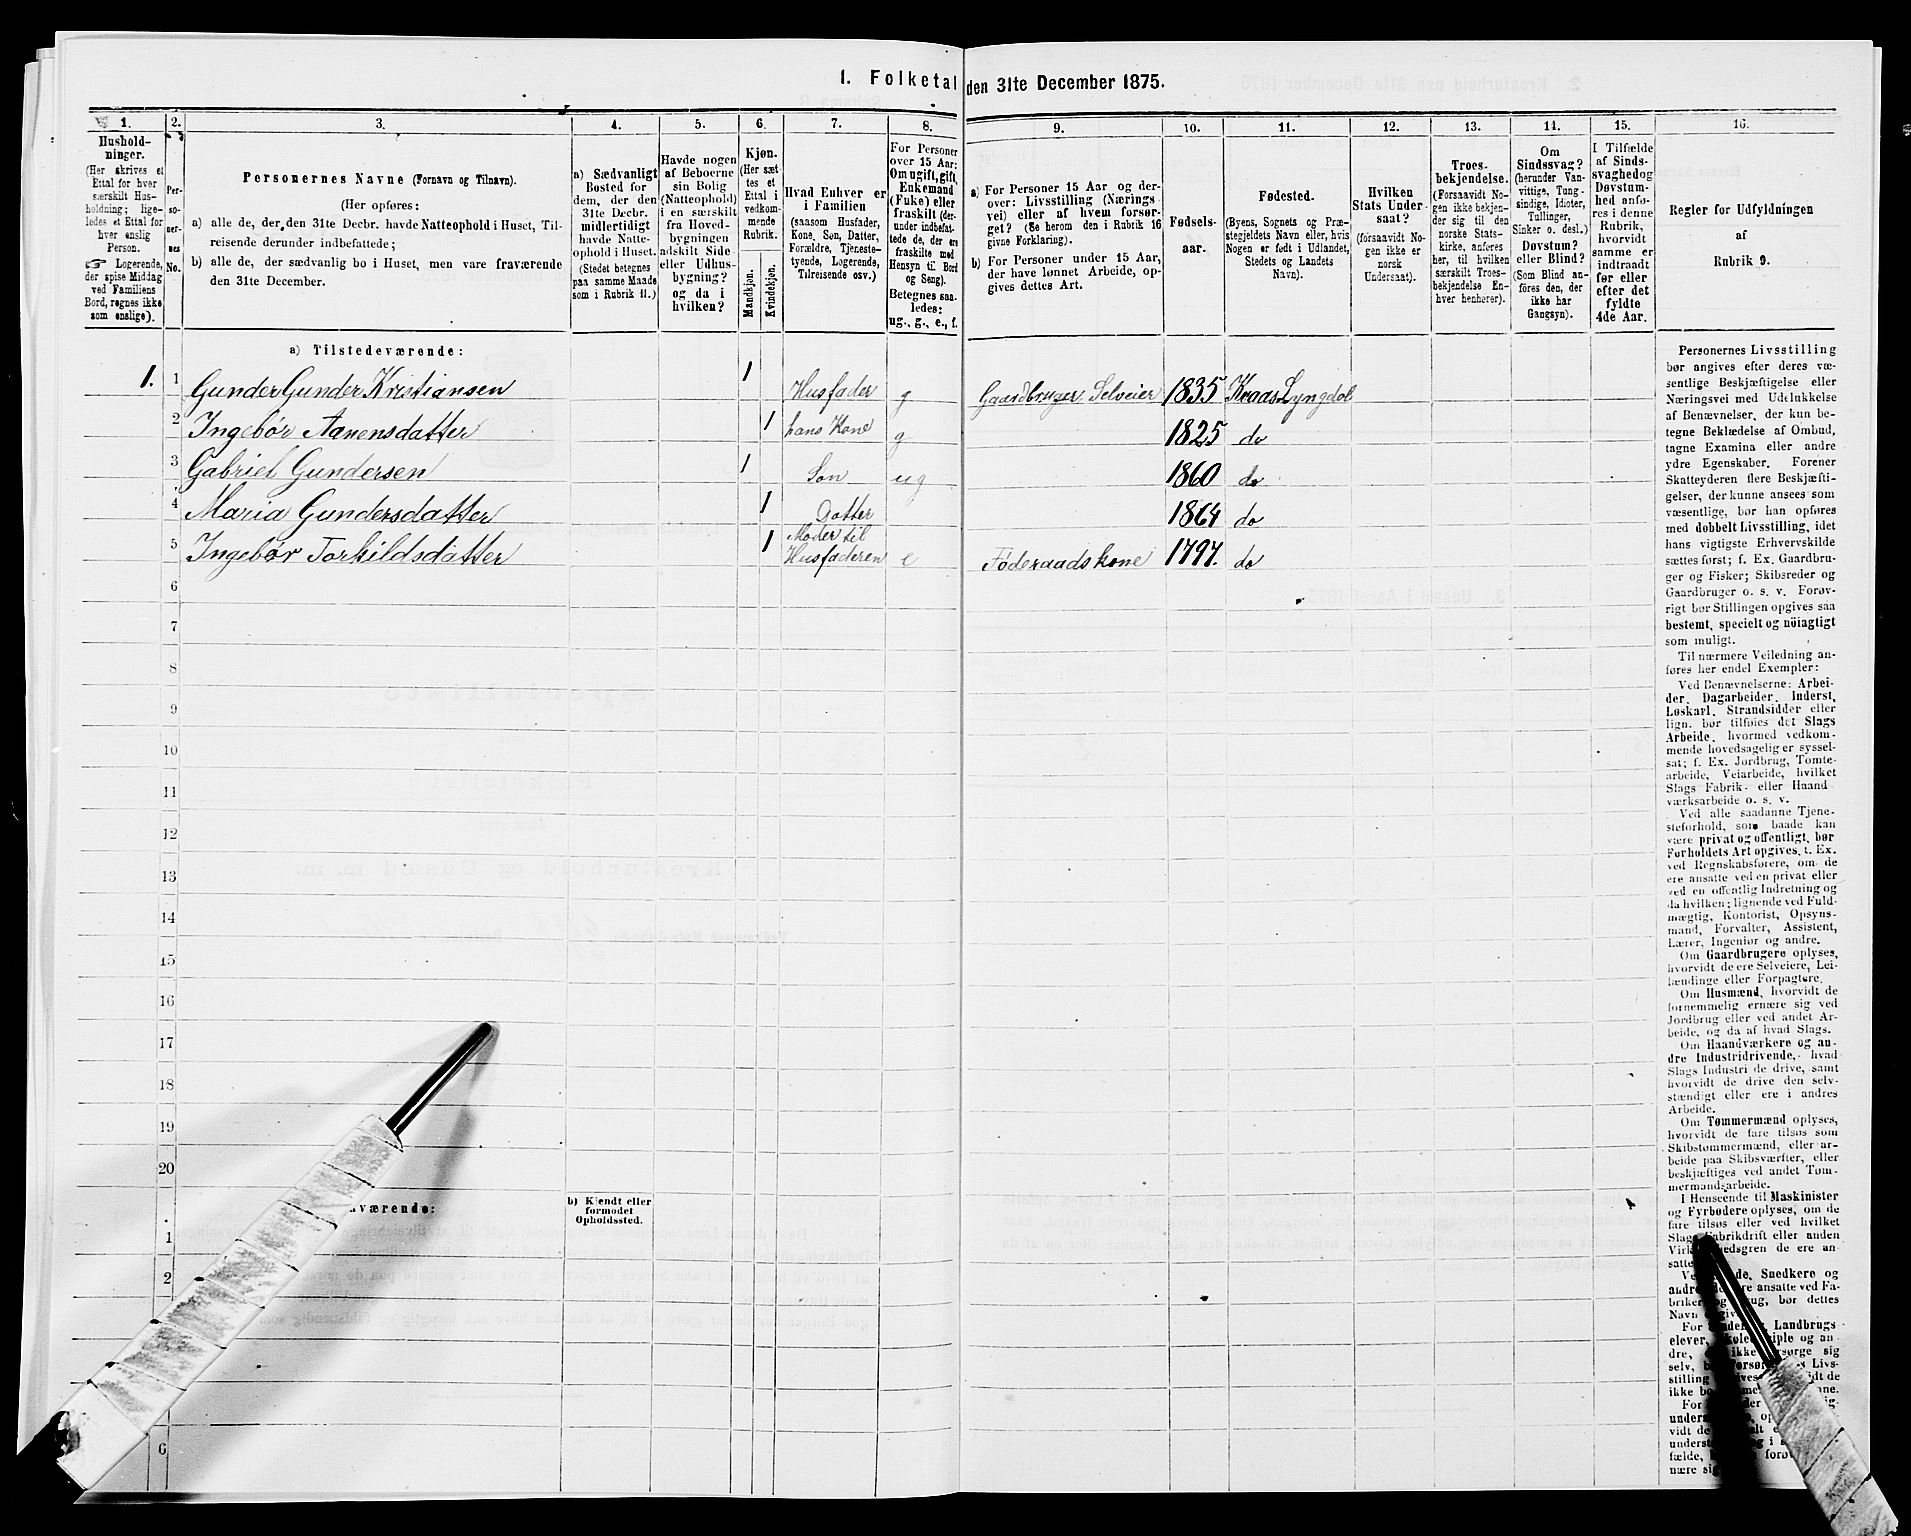 1. Folketal den 31te December 1875.
1.
Hushold-
ninger.
(Her skrives et
Ettal for hver
særskilt Hus-
holdning; lige-
ledes et Ettal for
hver enslig
Person.
☞ Logerende,
der spise Middag
ved Familiens
Bord, regnes ikke
som enslige).
2.
Per-
so-
ner-
nes
No.
3.
Personernes Navne (Fornavn og Tilnavn).
(Her opføres:
a) alle de, der den 31te Decbr. havde Natteophold i Huset, Til-
reisende derunder indbefattede;
b) alle de, der sædvanlig bo i Huset, men vare fraværende
den 31te December.
4.
a) Sædvanligt
Bosted for
dem, der den
31te Decbr.
midlertidigt
havde Natte-
ophold i Huset.
(Stedet betegnes
paa samme Maade
som i Rubrik 11.)
5.
Havde nogen
af Beboerne
sin Bolig
(Natteophold)
i en særskilt
fra Hoved-
bygningen
adskilt Side-
eller Udhus-
bygning?
og da i
hvilken?
6.
Kjøn.
(Her sæt-
tes et
Ettal i
vedkom-
mende
Rubrik.
Mandkjøn.
Kvindekjøn.
7.
Hvad Enhver er
i Familien
(saasom Husfader,
Kone, Søn, Datter,
Forældre, Tjeneste-
tyende, Logerende,
Tilreisende osv.)
8.
For Personer
over 15 Aar:
Om ugift, gift,
Enkemand
(Enke) eller
fraskilt (der-
under indbefat-
tede de, der ere
fraskilte med
Hensyn til Bord
og Seng).
Betegnes saa-
ledes:
ug., g., e., f.
9.
a) For Personer 15 Aar og der-
over: Livsstilling (Nærings-
vei) eller af hvem forsør-
get? (Se herom den i Rubrik 16
givne Forklaring).
b) For Personer under 15 Aar,
der have lønnet Arbeide, op-
gives dettes Art.
10.
Fødsels-
aar.
11.
Fødested.
(Byens, Sognets og Præ-
stegjeldets Navn eller, hvis
Nogen er født i Udlandet,
Stedets og Landets
Navn).
12.
Hvilken
Stats Under-
saat?
(forsaavidt No-
gen ikke er
norsk
Undersaat).
13.
Troes-
bekjendelse.
(Forsaavidt No-
gen ikke bekjen-
der sig til den
norske Stats-
kirke, anføres
her, til hvilken
særskilt Troes-
bekjendelse En-
hver henhører).
14.
Om
Sindssvag?
(herunder Van-
vittige, Tung-
sindige, Idioter,
Tullinger,
Sinker o. desl.)
Døvstum?
eller Blind?
(Som Blind an-
føres den, der
ikke har
Gangsyn).
15.
I Tilfælde
af Sinds-
svaghed og
Døvstum-
hed anfø-
res i denne
Rubrik,
hvorvidt
samme er
indtraadt
før eller
efter det
fyldte
4de Aar.
16.
Regler for Udfyldningen
af
Rubrik 9.
a) Tilstedeværende:
1. 1 Gunder Gunder Kristiansen 1 Husfader g Gaardbruger Selveier 1835 Kvaas Lyngdal
2 Ingebør Aanensdatter 1 hans Kone g 1825 do
3 Gabriel Gundersen 1 Søn ug 1860 do
4 Maria Gundersdatter 1 Datter 1864 do
5 Ingebør Torkildsdatter 1 Moder til Husfaderen e Føderaadskone 1797. do
6
7
8
9
10
11
12
13
14
15
16
17
18
19
20
værende:
b) Kjendt eller
formodet
Opholdssted.
1
2
6
Personernes Livsstilling
bør angives efter deres væ-
sentlige Beskjæftigelse eller
Næringsvei med Udelukkelse
af Benævnelser, der kun be-
tegne Beklædelse af Ombud,
tagne Examina eller andre
ydre Egenskaber. Forener
Skatteyderen flere Beskjæfti-
gelser, der kunne ansees som
væsentlige, bør han opføres
med dobbelt Livsstilling, idet
hans vigtigste Erhvervskilde
sættes først; f. Ex. Gaardbru-
ger og Fisker; Skibsreder og
Gaardbruger o. s. v. Forøv-
rigt bør Stillingen opgives saa
bestemt, specielt og nöiagtigt
som muligt.
Til nærmere Veiledning an-
føres her endel Exempler:
Ved Benævnelserne: Arbei-
der, Dagarbeider, Inderst,
Løskarl, Strandsidder eller
lign. bør tilføies det Slags
Arbeide, hvormed vedkom-
mende hovedsagelig er syssel-
sat; f. Ex. Jordbrug, Tomte-
arbeide, Veiarbeide, hvilket
Slags Fabrik- eller Haand-
værksarbeide o. s. v.
Ved alle saadanne Tjene-
steforhold, som baade kan
være privat og offentligt, bør
Forholdets Art opgives, f. Ex.
ved Regnskabsførere, om de
ere ansatte ved en privat eller
ved en offentlig Indretning og
da hvilken; lignende ved Fuld-
mægtig, Kontorist, Opsyns-
mand, Forvalter, Assistent,
Lærer, Ingeniør og andre.
Om Gaardbrugere oplyses,
hvorvidt de ere Selveiere, Lei-
lændinge eller Forpagtere.
Om Husmænd, hvorvidt de
fornemmelig ernære sig ved
Jordbrug eller ved andet Ar-
beide, og da af hvad Slags.
Om Haandværkere og an-
dre Industridrivende, hvad
Slags Industri de drive, samt
hvorvidt de drive den selv-
stændigt eller ere i andres
Arbeide.
Om Tømmermænd oplyses,
hvorvidt de fare tilsøs som
Skibstømmermænd, eller ar-
beide paa Skibsværfter, eller
beskjæftiges ved andet Tøm-
mermandsarbeide.
I Henseende til Maskinister
og Fyrbødere oplyses, om de
fare tilsøs eller ved hvilket
Slags Fabrikdrift eller anden